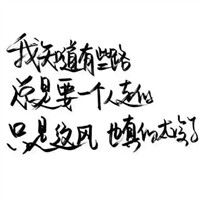 我知道有些路
总是要一个人去的
只是这风 也真的太冷了